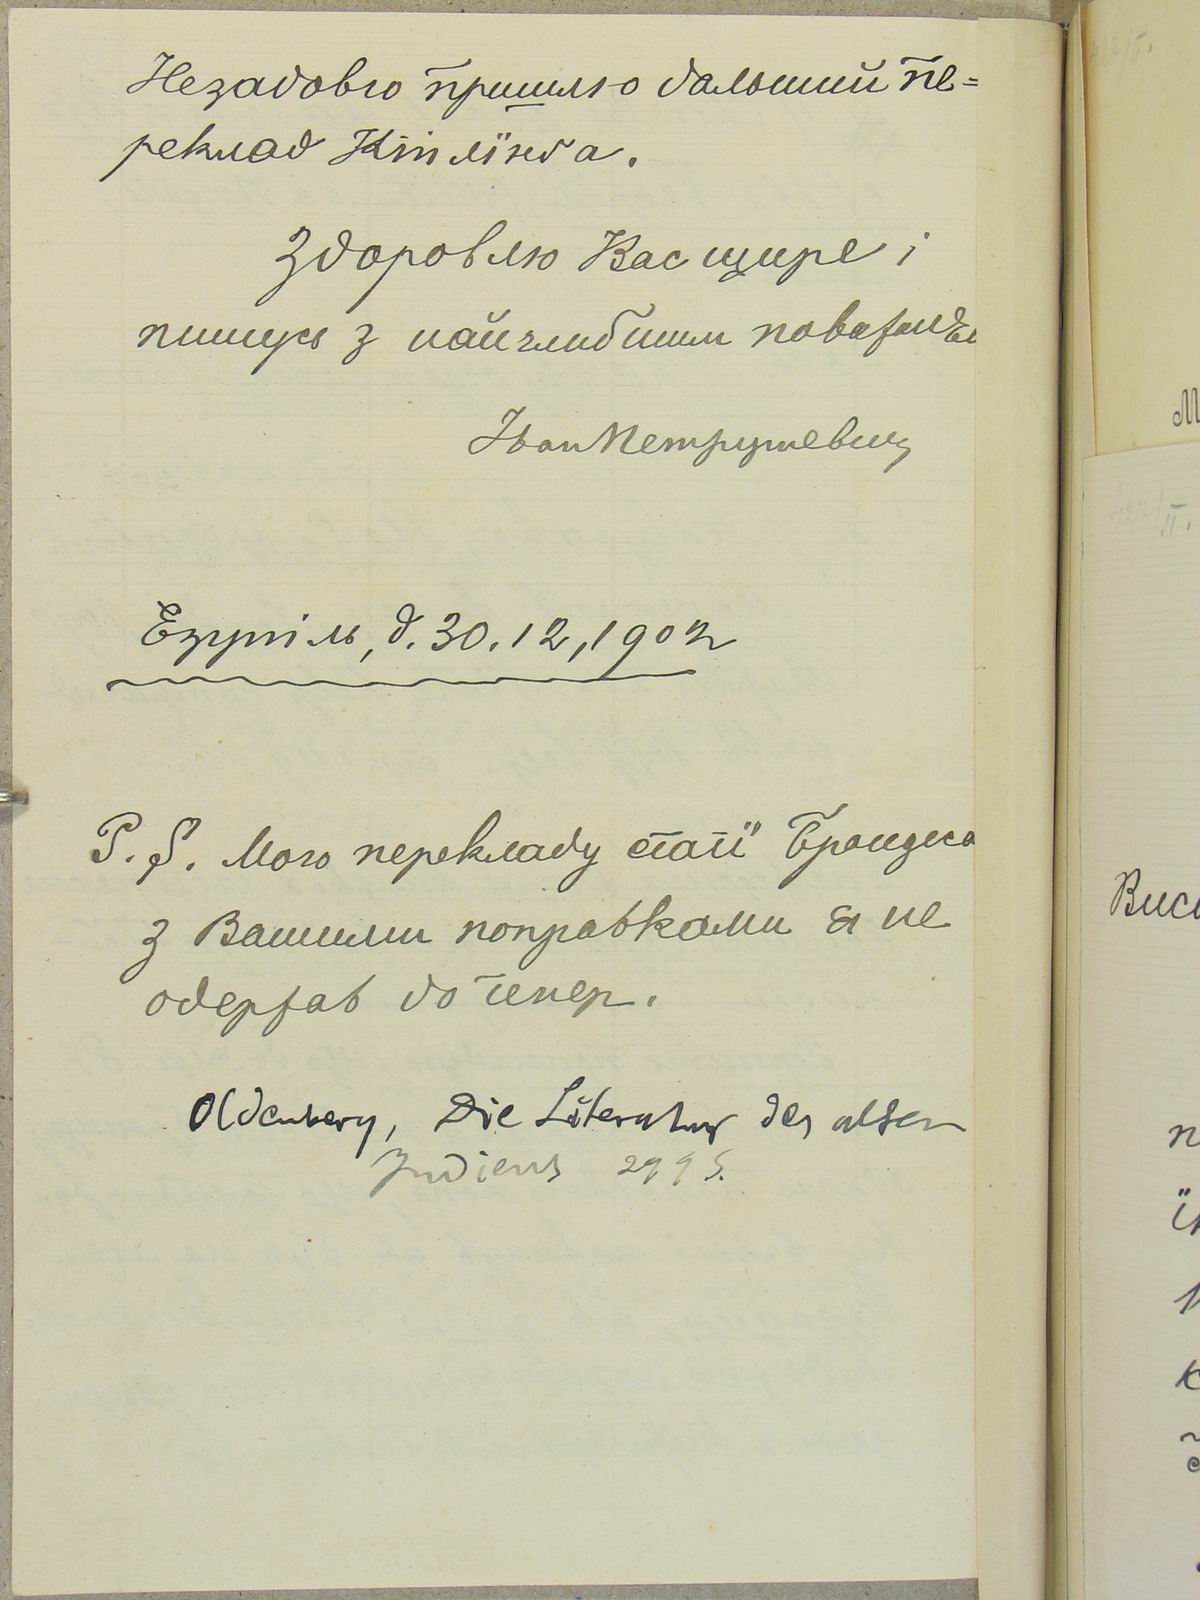 Незадовго пришлю дальший пе=
реклад Кіплїнґа.
Здоровлю Вас щире і
пишусь з найглибшим поважанєм
Іван Петрушевич
Езупіль, д. 30. 12, 1902
P. S. Мого перекладу статї Брандеса
з Вашими поправками я не
одержав до тепер.
Oldenberg, Die Literatur des alten
Indiens 299 S.